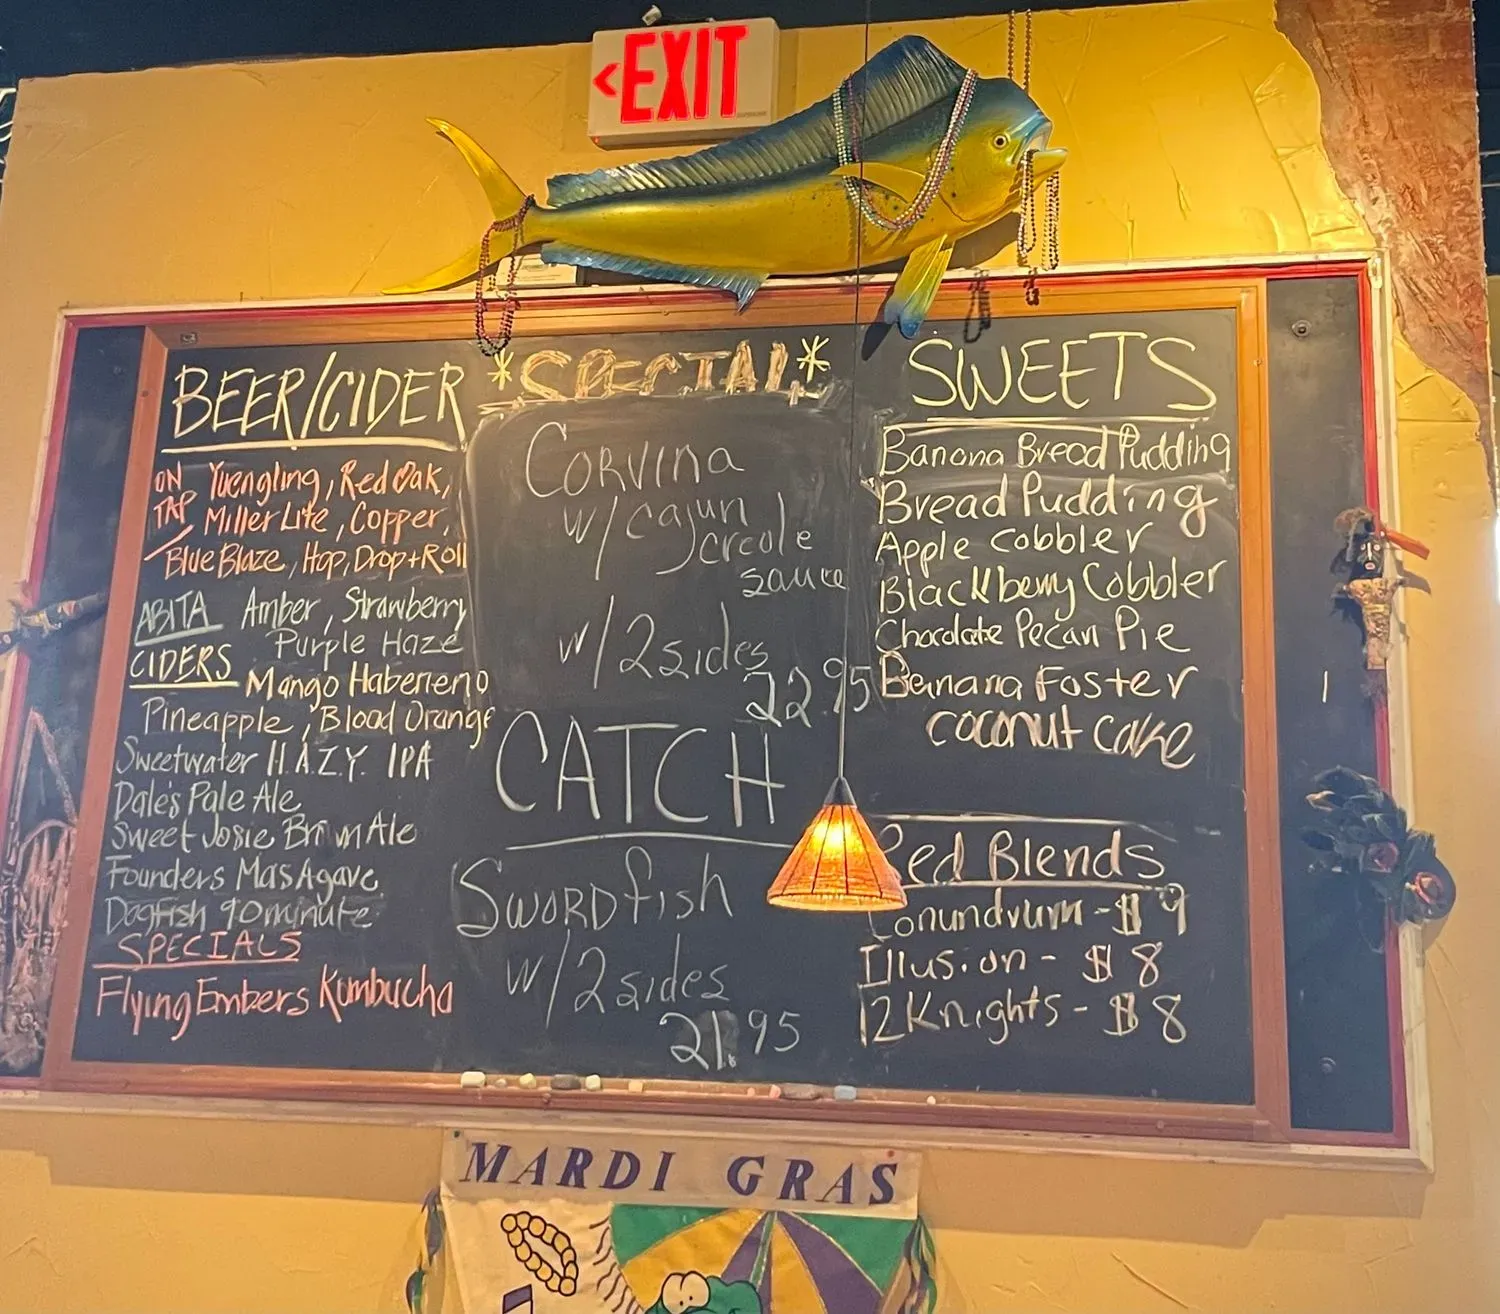 <EXIT
BEER/CIDER
ON TAP
Yuengling, Red Oak,
Miller Lite, Copper,
Blue Blaze, Hop, Drop+Roll
ABITA Amber, Strawberry
Purple Haze
CIDERS Mango Habeneno
Pineapple, Blood Orange
Sweetwater H.A.Z.Y. IPA
Dale's Pale Ale
Sweet Josie Brown Ale
Founders Mas Agave
Dogfish 90 minute
SPECIALS
Flying Embers Kombucha
*SPECIAL*
Corvina
w/ cajun
creole
sauce
w/2 sides
22.95
CATCH
Swordfish
w/2 sides
21.95
SWEETS
Banana Bread Pudding
Bread Pudding
Apple cobbler
Blackberry Cobbler
Chocolate Pecan Pie
Banana Foster
coconut cake
Red Blends
Conundrum - $9
Illusion - $8
12 Knights - $8
MARDI GRAS